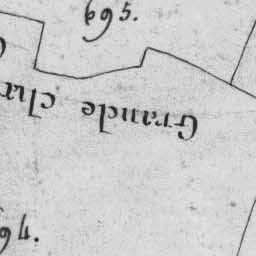 695.
Grande cha
94.